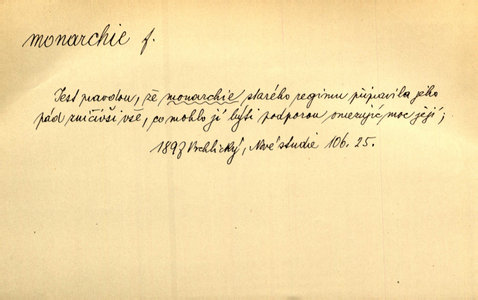 monarchie f.
Jest pravdou, že monarchie starého regimu připravila jeho
pád zničivši vše, co mohlo jí býti podporou omezujíc moc její;
1897 Vrchlický, Nové studie 106. 25.